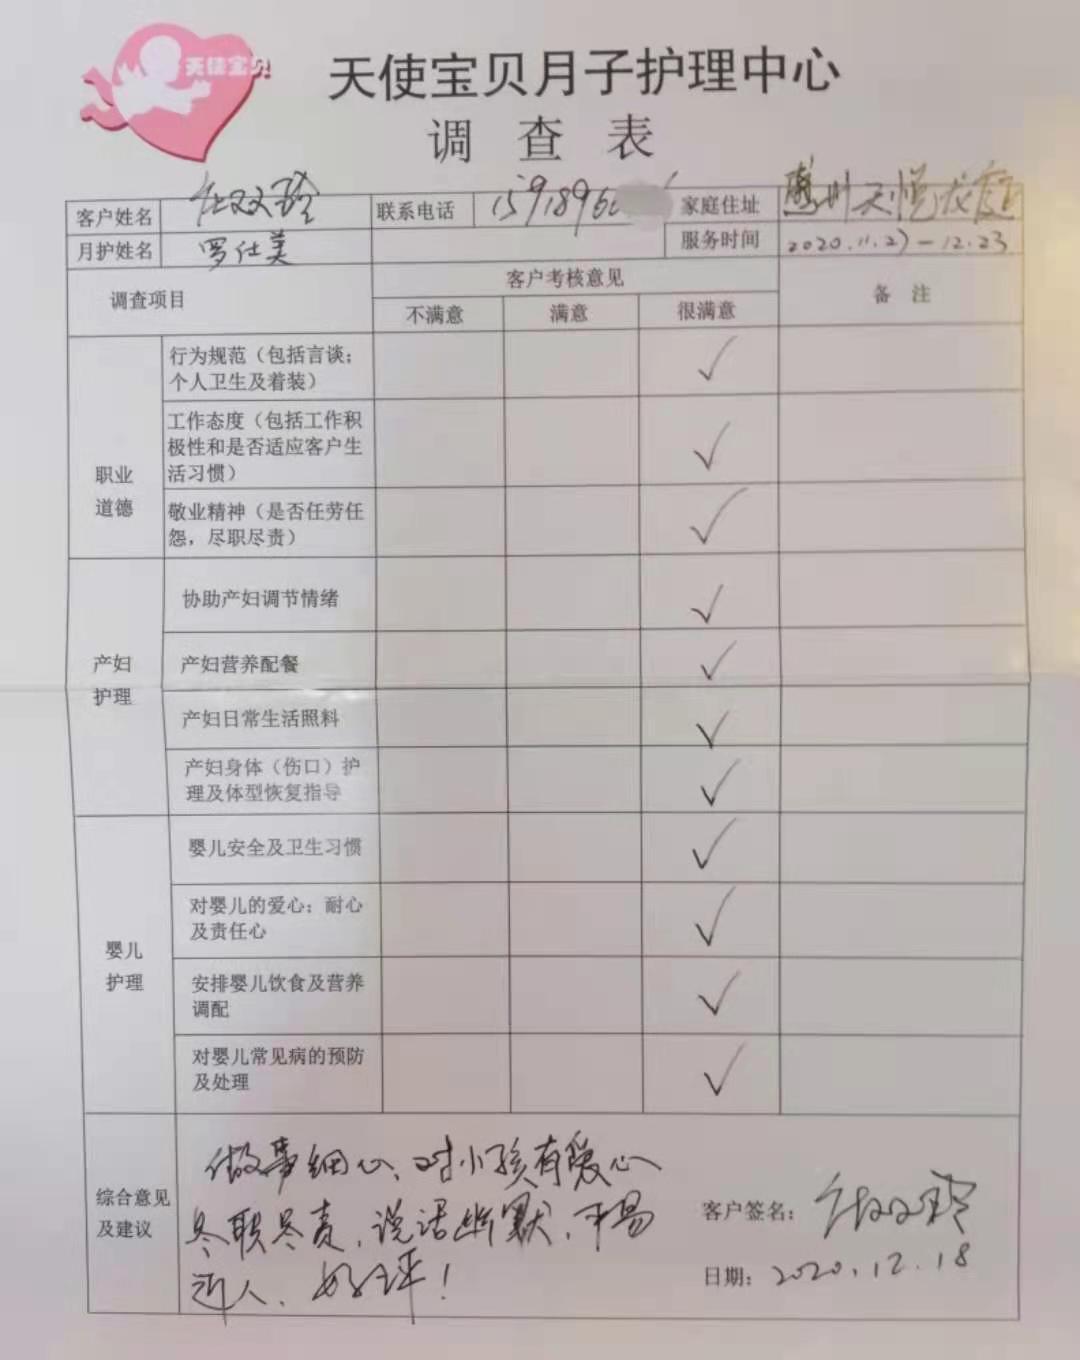 天使宝贝
天使宝贝月子护理中心
调 查 表
客户姓名 联系电话 1591896 家庭住址 惠州天悦龙庭
月护姓名 罗仕美 服务时间 2020.11.27-12.23
调查项目 客户考核意见 备 注
不满意 满意 很满意
职业
道德
行为规范（包括言谈；
个人卫生及着装）
✓
工作态度（包括工作积
极性和是否适应客户生
活习惯）
✓
敬业精神（是否任劳任
怨，尽职尽责）
✓
产妇
护理
协助产妇调节情绪 ✓
产妇营养配餐 ✓
产妇日常生活照料 ✓
产妇身体（伤口）护
理及体型恢复指导
✓
婴儿
护理
婴儿安全及卫生习惯 ✓
对婴儿的爱心；耐心
及责任心
✓
安排婴儿饮食及营养
调配
✓
对婴儿常见病的预防
及处理
✓
综合意见
及建议
做事细心、对小孩有爱心
尽职尽责，说话幽默，平易
近人、好评！
客户签名：
日期：2020.12.18